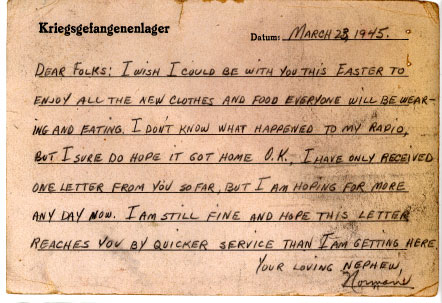 Kriegsgefangenenlager
Datum: MARCH 23, 1945.
DEAR FOLKS: I WISH I COULD BE WITH YOU THIS EASTER TO
ENJOY ALL THE NEW CLOTHES AND FOOD EVERYONE WILL BE WEAR-
ING AND EATING. I DON'T KNOW WHAT HAPPENED TO MY RADIO,
BUT I SURE DO HOPE IT GOT HOME O.K., I HAVE ONLY RECEIVED
ONE LETTER FROM YOU SO FAR, BUT I AM HOPING FOR MORE
ANY DAY NOW. I AM STILL FINE AND HOPE THIS LETTER
REACHES YOU BY QUICKER SERVICE THAN I AM GETTING HERE.
YOUR LOVING NEPHEW,
Norman